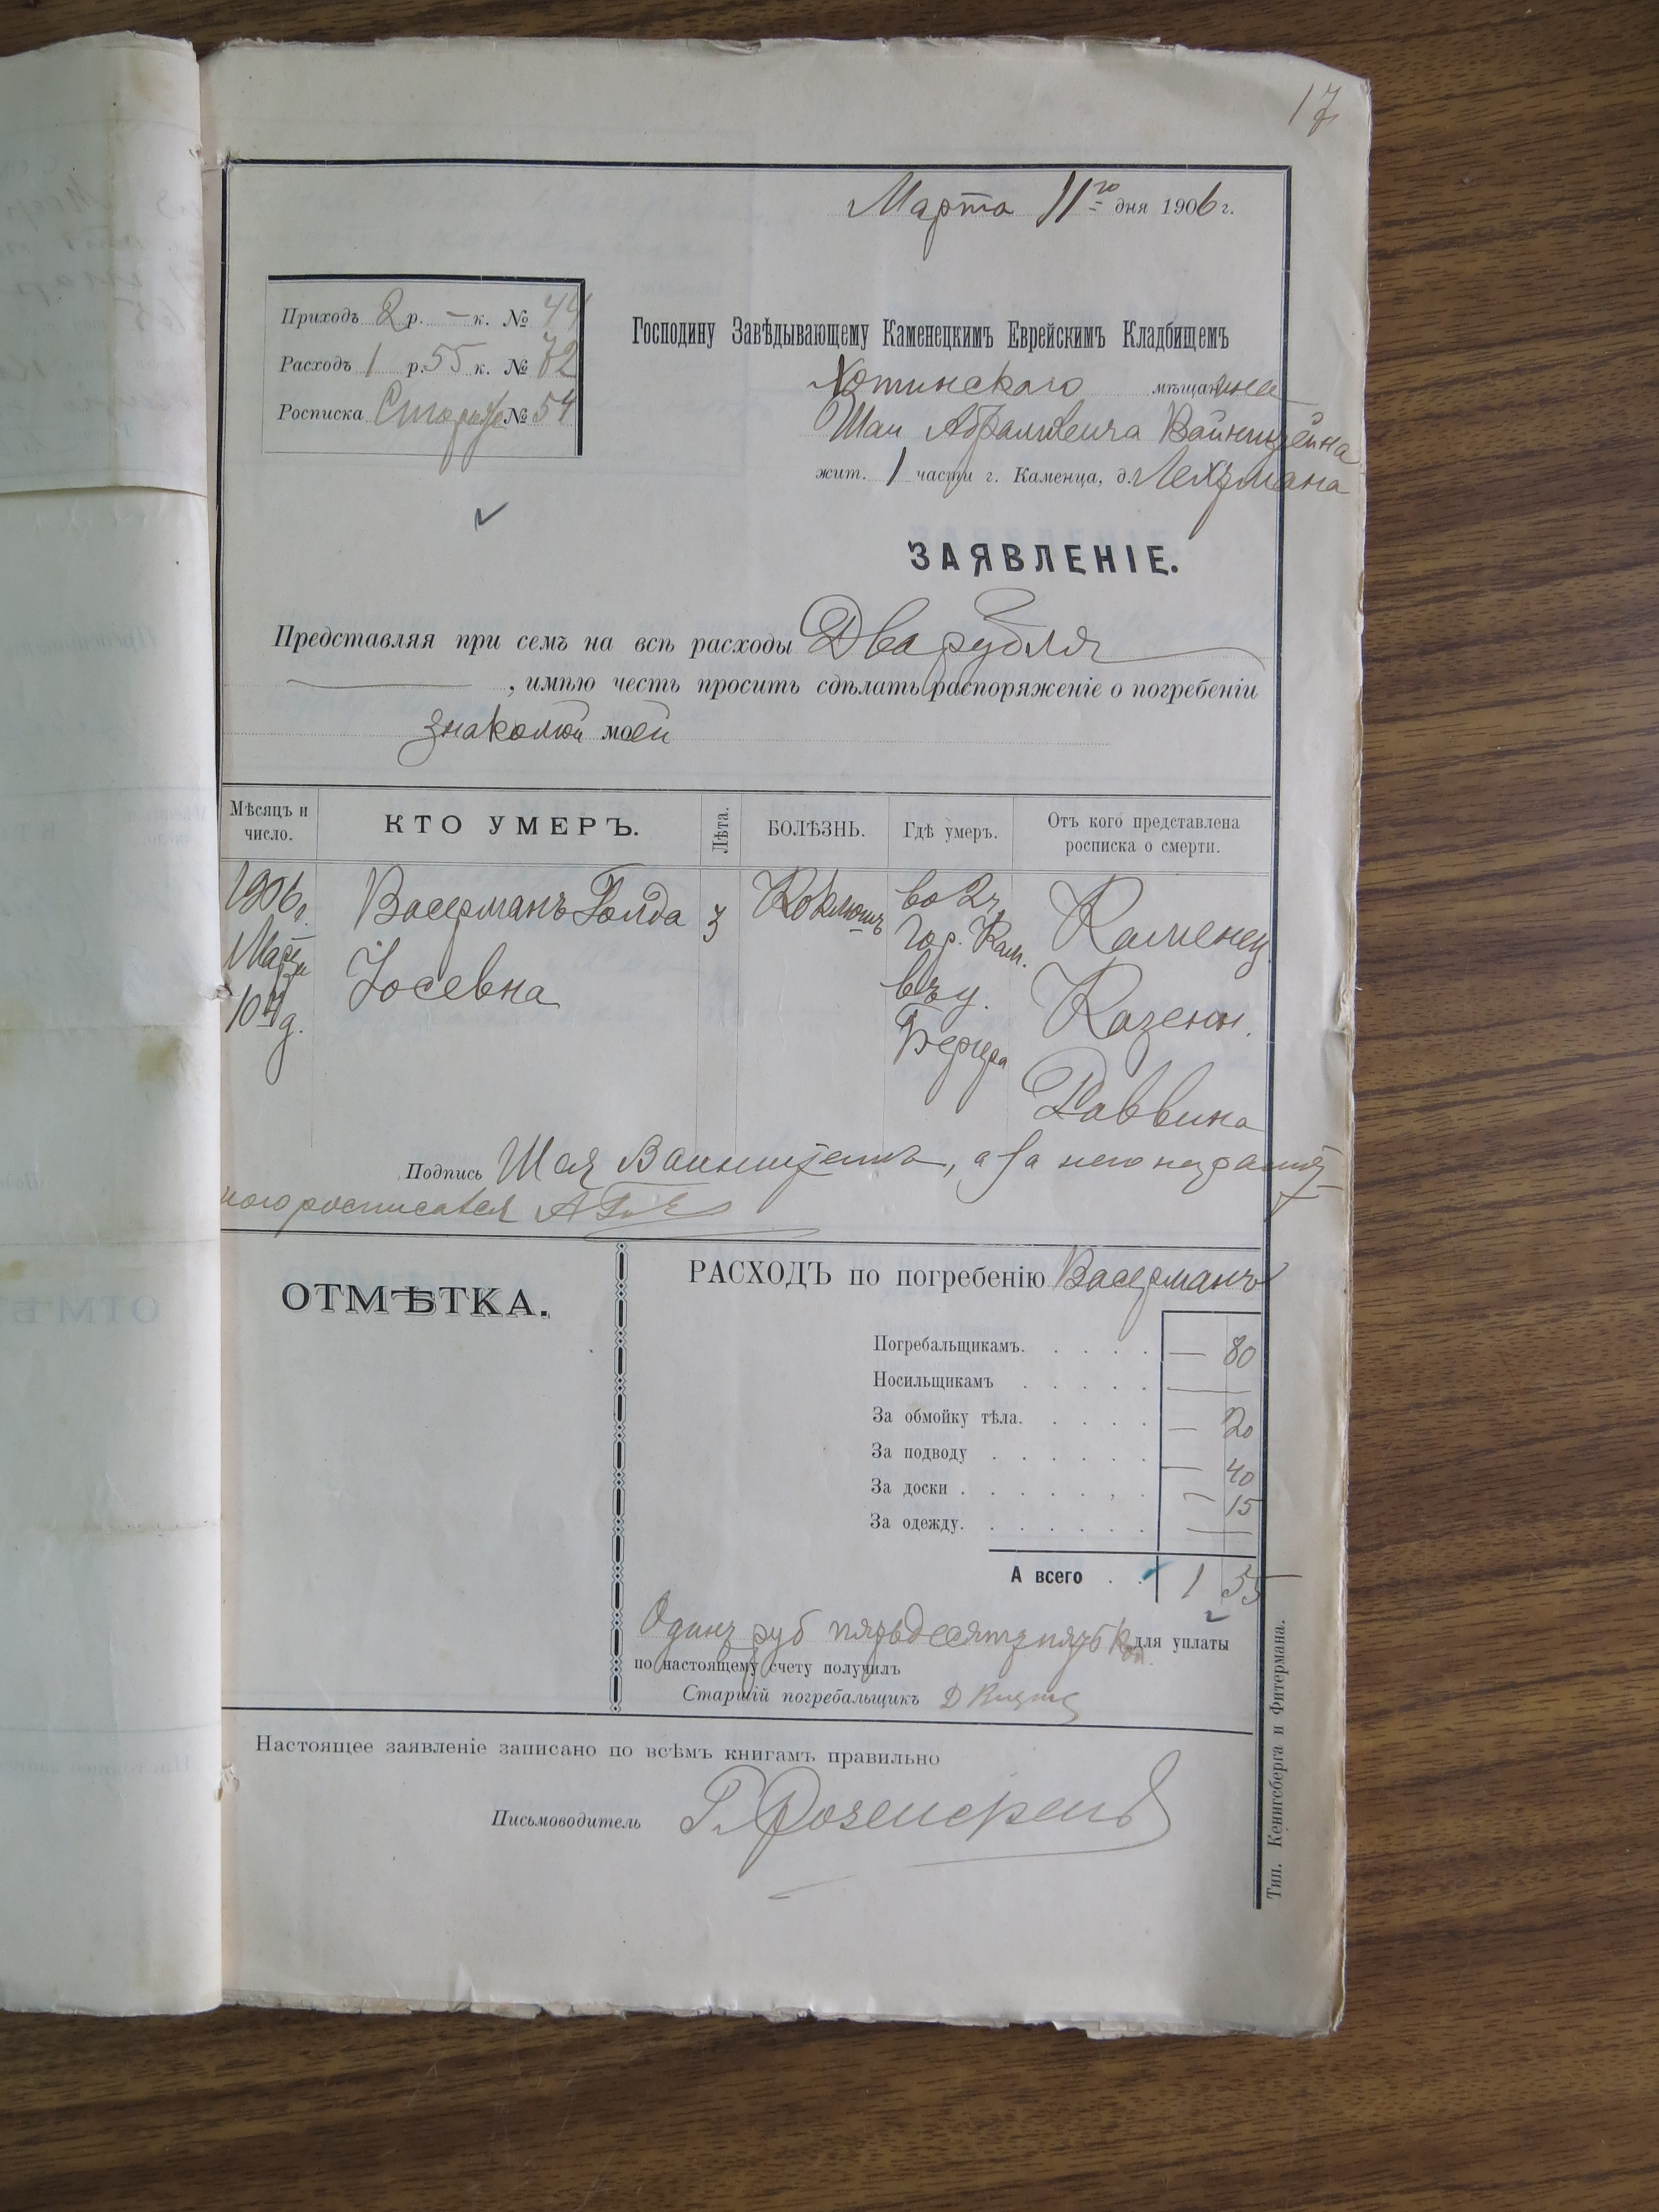 17
Марта 11го дня 1906 г.
Приходъ 2 р. — к. № 44
Расходъ 1 р. 55 к. № 72
Росписка Сторожа № 54
Господину Завѣдывающему Каменецкимъ Еврейскимъ Кладбищемъ
Хотинскаго мѣщанина
Шаи Абрамовича Вайнштейна
жит. 1 части г. Каменца, д. Лехтмана
ЗАЯВЛЕНІЕ.
Представляя при семъ на всѣ расходы Два рубля
, имѣю честь просить сдѣлать распоряженіе о погребеніи
знакомой моей
Мѣсяцъ и число. КТО УМЕРЪ. Лѣта. БОЛѢЗНЬ. Гдѣ умеръ. Отъ кого представлена росписка о смерти.
1906 г. Васерманъ Голда 3 Коклюшъ во 2 ч. Каменец.
Марта Іосевна гор. Кам. Казенн.
10 д. въ д. Раввина
Подпись Шая Вайнштейнъ, а за него неграмот
ного росписался
ОТМѢТКА.
РАСХОДЪ по погребенію Васерманъ
Погребальщикамъ. — 80
Носильщикамъ —
За обмойку тѣла. — 20
За подводу — 40
За доски — 15
За одежду. —
А всего 1 55
Одинъ руб пятьдесятъ пять коп. для уплаты
по настоящему счету получилъ
Старшій погребальщикъ Д
Настоящее заявленіе записано по всѣмъ книгамъ правильно
Письмоводитель
Тип. Кенигсберга и Фитермана.